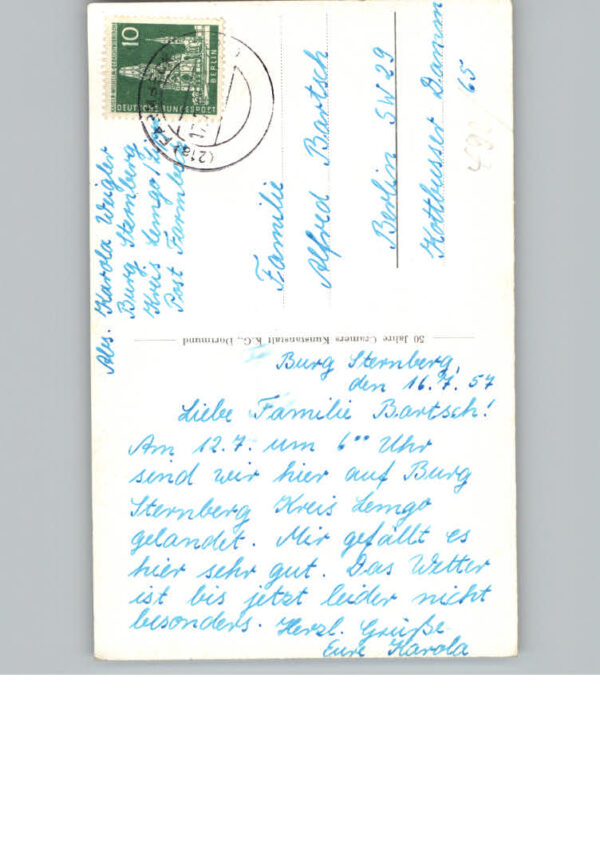 10
DEUTSCHE BUNDESPOST
BERLIN
Abs. Karola Weigler
Burg Sternberg
Kreis Lemgo/Lippe
Post Farmbeck
Familie
Alfred Bartsch
Berlin SW 29
Kottbusser Damm
65
50 Jahre Cramers Kunstanstalt K.G., Dortmund
Burg Sternberg,
den 16.7.57
Liebe Familie Bartsch!
Am 12.7. um 6°° Uhr
sind wir hier auf Burg
Sternberg Kreis Lemgo
gelandet. Mir gefällt es
hier sehr gut. Das Wetter
ist bis jetzt leider nicht
besonders. Herzl. Grüße
Eure Karola